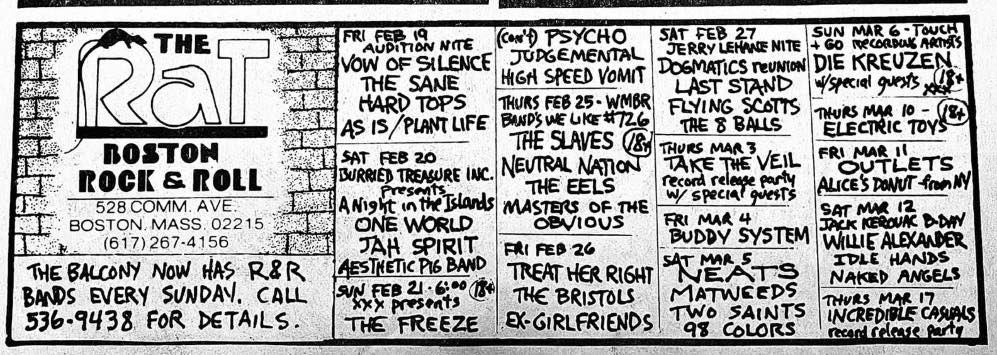 THE
RAT
BOSTON
ROCK & ROLL
528 COMM. AVE.
BOSTON, MASS. 02215
(617) 267-4156
THE BALCONY NOW HAS R&R
BANDS EVERY SUNDAY. CALL
536-9438 FOR DETAILS.
FRI FEB 19
AUDITION NITE
VOW OF SILENCE
THE SANE
HARD TOPS
AS IS/PLANT LIFE
SAT FEB 20
BURRIED TREASURE INC.
Presents
A Night in the Islands
ONE WORLD
JAH SPIRIT
AESTHETIC PIG BAND
SUN FEB 21 - 6:00 18+
xxx presents
THE FREEZE
(con't) PSYCHO
JUDGEMENTAL
HIGH SPEED VOMIT
THURS FEB 25 - WMBR
BANDS WE LIKE #726
THE SLAVES 18+
NEUTRAL NATION
THE EELS
MASTERS OF THE
OBVIOUS
FRI FEB 26
TREAT HER RIGHT
THE BRISTOLS
EX-GIRLFRIENDS
SAT FEB 27
JERRY LEHANE NITE
DOGMATICS reunion
LAST STAND
FLYING SCOTTS
THE 8 BALLS
THURS MAR 3
TAKE THE VEIL
record release party
w/ special guests
FRI MAR 4
BUDDY SYSTEM
SAT MAR 5
NEATS
MATWEEDS
TWO SAINTS
98 COLORS
SUN MAR 6 - TOUCH
+ GO RECORDING ARTISTS
DIE KREUZEN
w/special guests 18+
xxx
THURS MAR 10 - 18+
ELECTRIC TOYS
FRI MAR 11
OUTLETS
ALICE'S DONUT - from NY
SAT MAR 12
JACK KEROUAC B-DAY
WILLIE ALEXANDER
IDLE HANDS
NAKED ANGELS
THURS MAR 17
INCREDIBLE CASUALS
record release party